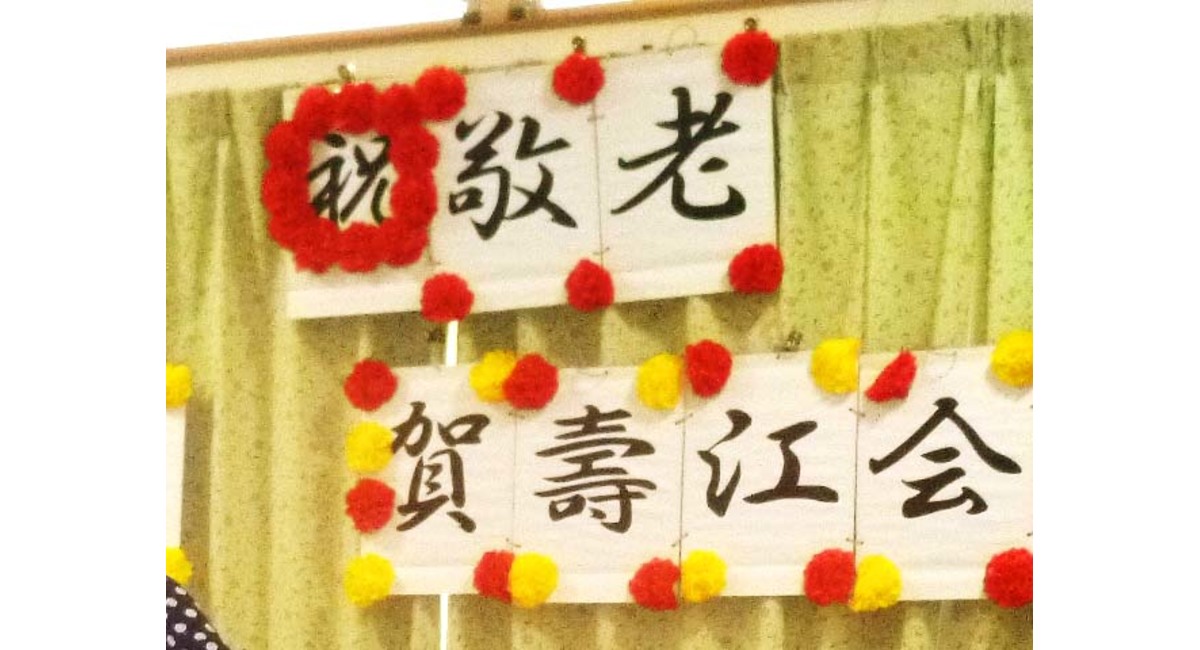 祝敬老
賀壽江会